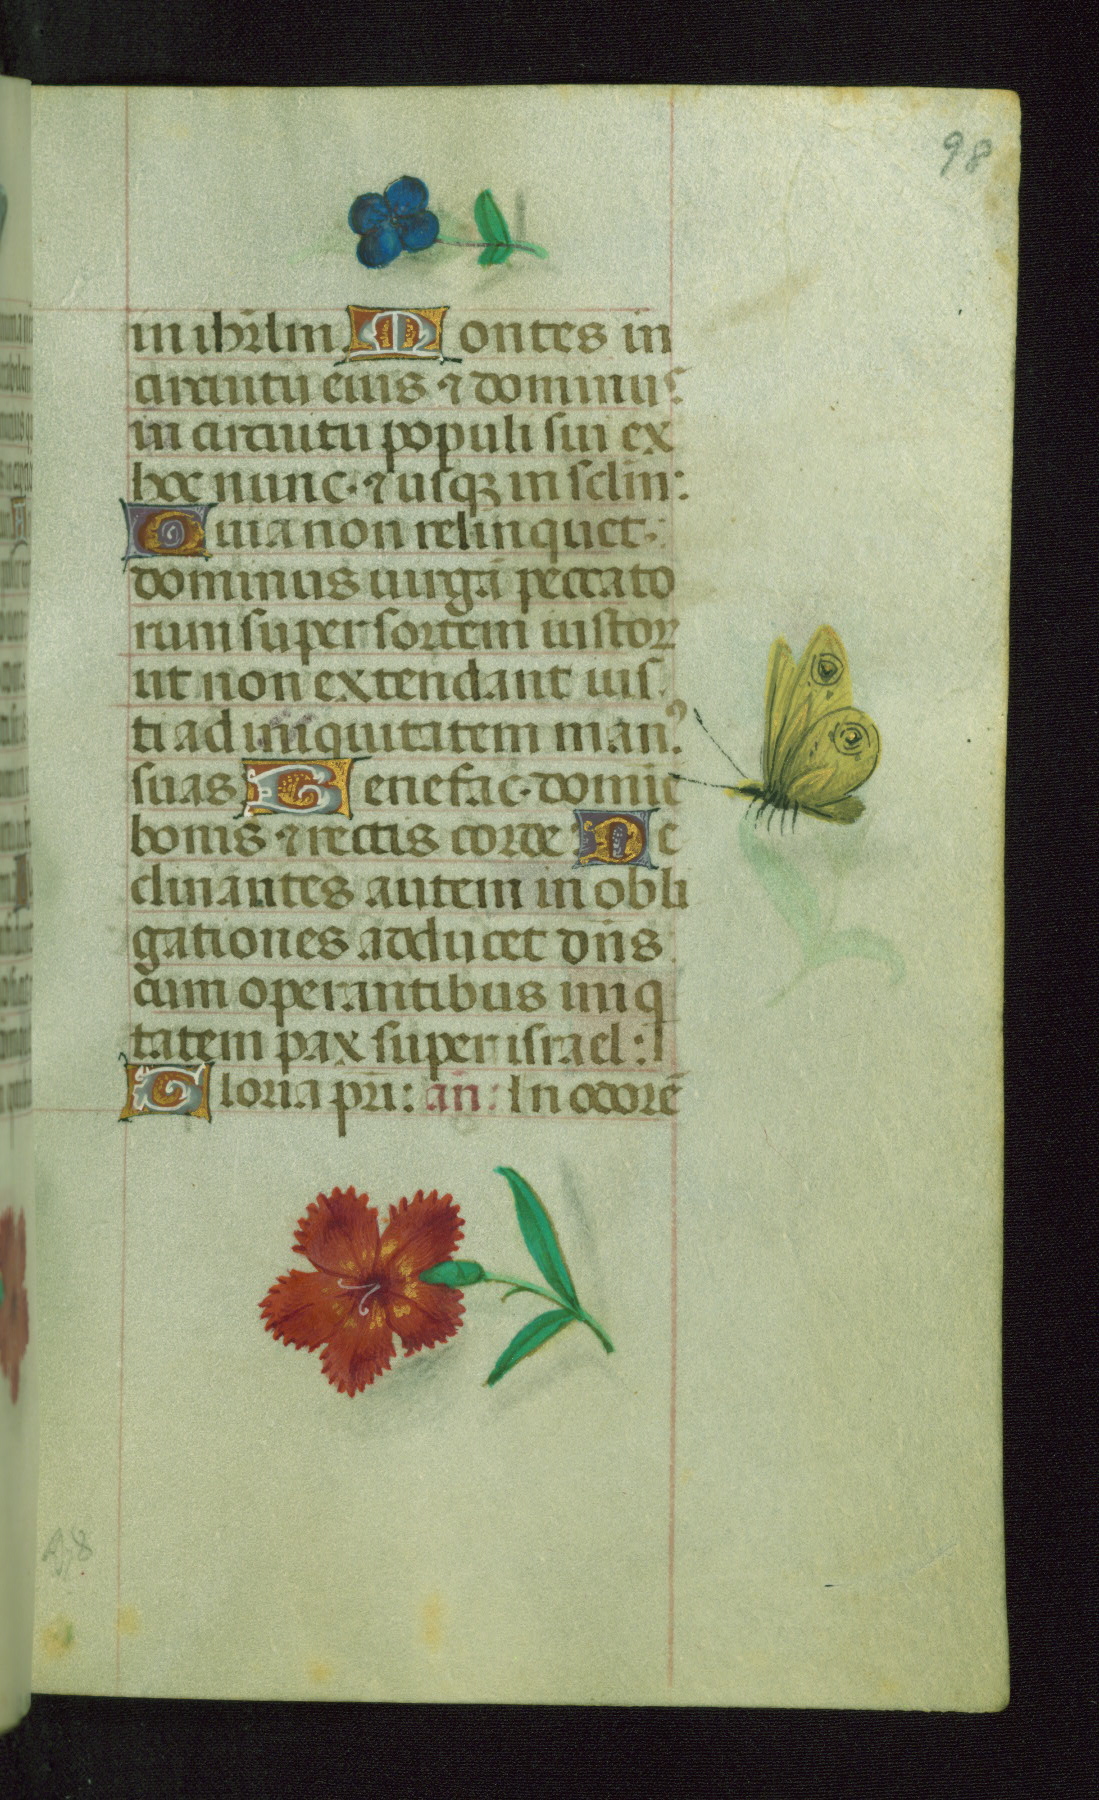 98
in ihrl̄m Montes in
circuitu eius ⁊ dominus
in circuitu populi sui ex
hoc nunc · ⁊ usqꝫ in scl̄m:
Quia non relinquet ·
dominus uirgā peccato
rum super sortem iustoꝝ
ut non extendant ius
ti ad iniquitatem manꝰ
suas Benefac · domīe
bonis ⁊ rectis corde De
clinantes autem in obli
gationes adducet dn̄s
cum operantibus iniq
tatem pax super israel:
Gloria pri: an̄: In odorē
98